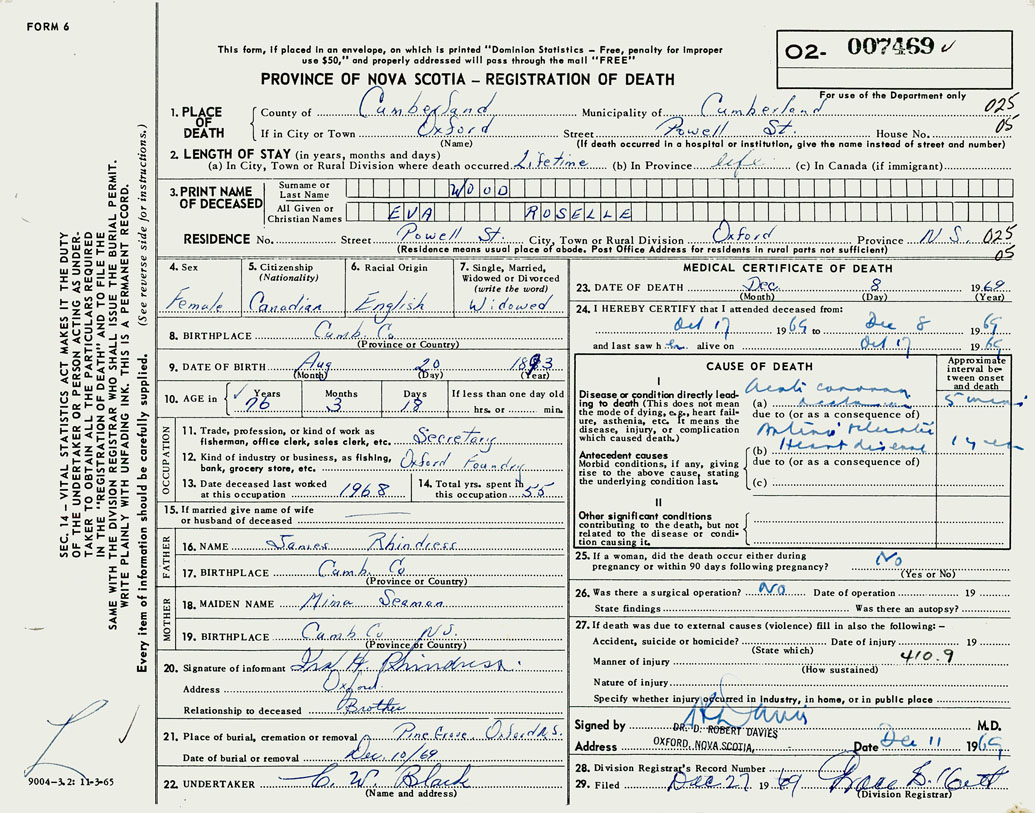 FORM 6
This form, if placed in an envelope, on which is printed "Dominion Statistics – Free, penalty for improper
use $50," and properly addressed will pass through the mail "FREE"
PROVINCE OF NOVA SCOTIA – REGISTRATION OF DEATH
O2- 007469 ✓
For use of the Department only
025
05
1. PLACE OF DEATH
County of Cumberland Municipality of Cumberland
If in City or Town Oxford Street Powell St. House No.
(Name) (If death occurred in a hospital or institution, give the name instead of street and number)
2. LENGTH OF STAY (in years, months and days)
(a) In City, Town or Rural Division where death occurred Lifetime (b) In Province life (c) In Canada (if immigrant)
3. PRINT NAME OF DECEASED
Surname or Last Name WOOD
All Given or Christian Names EVA ROSELLE
RESIDENCE No. Street Powell St. City, Town or Rural Division Oxford Province N.S. 025
(Residence means usual place of abode. Post Office Address for residents in rural parts not sufficient) 05
4. Sex Female
5. Citizenship (Nationality) Canadian
6. Racial Origin English
7. Single, Married, Widowed or Divorced (write the word) Widowed
8. BIRTHPLACE Cumb. Co
(Province or Country)
9. DATE OF BIRTH Aug 20 1893
(Month) (Day) (Year)
10. AGE in ✓ Years 76 Months 3 Days 18 If less than one day old hrs. or min.
OCCUPATION
11. Trade, profession, or kind of work as
fisherman, office clerk, sales clerk, etc. Secretary
12. Kind of industry or business, as fishing,
bank, grocery store, etc. Oxford Foundry
13. Date deceased last worked
at this occupation 1968
14. Total yrs. spent in
this occupation 55
15. If married give name of wife
or husband of deceased
FATHER
16. NAME James Rhindress
17. BIRTHPLACE Cumb. Co
(Province or Country)
MOTHER
18. MAIDEN NAME Mina Seaman
19. BIRTHPLACE Cumb Co N.S.
(Province or Country)
20. Signature of informant Ira H. Rhindress.
Address Oxford
Relationship to deceased Brother
21. Place of burial, cremation or removal Pine Grove Oxford N.S.
Date of burial or removal Dec. 10/69
22. UNDERTAKER C. W. Black
(Name and address)
MEDICAL CERTIFICATE OF DEATH
23. DATE OF DEATH Dec. 8 1969
(Month) (Day) (Year)
24. I HEREBY CERTIFY that I attended deceased from:
Oct 17 1969 to Dec 8 1969
and last saw h er alive on Oct 17 1969
CAUSE OF DEATH
Approximate interval between onset and death
I
Disease or condition directly leading to death (This does not mean the mode of dying, e.g., heart failure, asthenia, etc. It means the disease, injury, or complication which caused death.)
(a) Acute coronary 5 mins
due to (or as a consequence of)
Antecedent causes
Morbid conditions, if any, giving rise to the above cause, stating the underlying condition last.
(b) Heart disease 1 year
due to (or as a consequence of)
(c)
II
Other significant conditions
contributing to the death, but not
related to the disease or condition causing it.
25. If a woman, did the death occur either during
pregnancy or within 90 days following pregnancy? No
(Yes or No)
26. Was there a surgical operation? NO Date of operation 19
State findings Was there an autopsy?
27. If death was due to external causes (violence) fill in also the following: –
Accident, suicide or homicide? Date of injury 19
(State which)
410.9
Manner of injury
(How sustained)
Nature of injury
Specify whether injury occurred in industry, in home, or in public place
Signed by DR. D. ROBERT DAVIES M.D.
Address OXFORD, NOVA SCOTIA, Date Dec 11 1969
28. Division Registrar's Record Number
29. Filed Dec 27 1969
(Division Registrar)
SEC. 14 – VITAL STATISTICS ACT MAKES IT THE DUTY
OF THE UNDERTAKER OR PERSON ACTING AS UNDER-
TAKER TO OBTAIN ALL THE PARTICULARS REQUIRED
IN THE "REGISTRATION OF DEATH" AND TO FILE THE
SAME WITH THE DIVISION REGISTRAR WHO SHALL ISSUE THE BURIAL PERMIT.
WRITE PLAINLY WITH UNFADING INK. THIS IS A PERMANENT RECORD.
Every item of information should be carefully supplied. (See reverse side for instructions.)
9004-3.2: 11-3-65